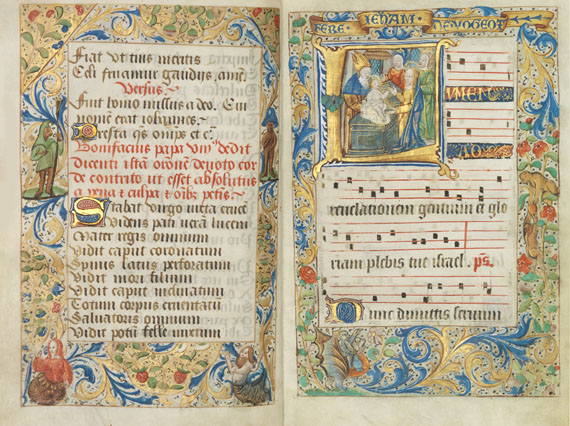 Fiat ut tuis meritis
Celi fruamur gaudiis, amẽ
Versus
Fuit homo missus a deo. Cui
nomẽ erat iohannes.
Presta q̃s om̃ps et c̃
Bonifacius papa viij dedit
dicenti istã or̃onẽ deuoto cor
de contrito ut esset absolutus
a pena & culpa & õibz petis
Stabat virgo iuxta crucẽ
Videns pati verã lucem
Mater regis omnium
Vidit caput coronatum
Spinis latus perforatum
Vidit mori filium
Vidit caput inclinatum
Totum corpus cruentatũ
Saluatoris omnium
Vidit potũ felle mixtum
FERE IEHAM DE NOGENT
LUMEN
AD
reuelationem gentium et glo
riam plebis tue israel. ps.
Nunc dimittis seruum